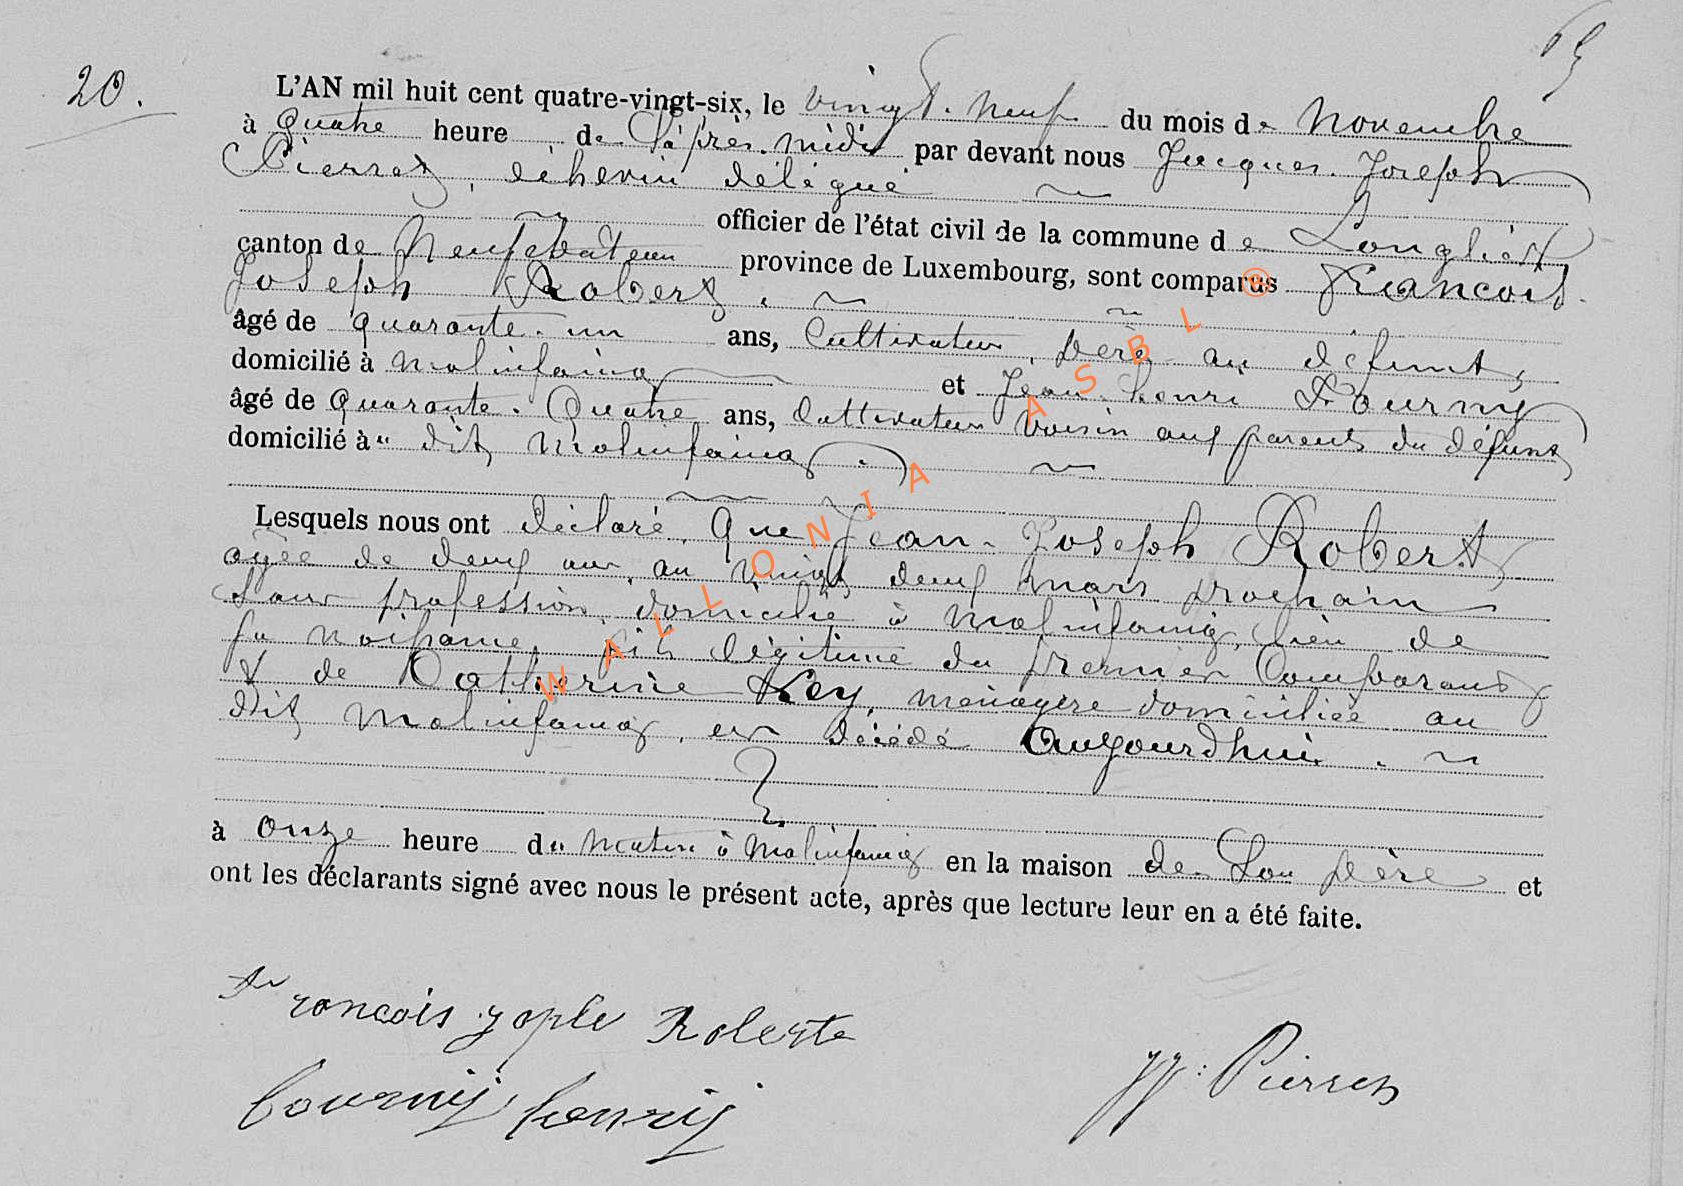 65
20.
L'AN mil huit cent quatre-vingt-six, le vingt-neuf du mois de Novembre
à quatre heure de l'après-midi par devant nous Jacques-Joseph
Pierret, échevin délégué
officier de l'état civil de la commune de Longlier
canton de Neufchateau province de Luxembourg, sont comparus François
Joseph Robert,
âgé de quarante-un ans, Cultivateur, père au défunt,
domicilié à Molinfaing et Jean-henri Fourny
âgé de quarante-quatre ans, Cultivateur voisin aux parents du défunt
domicilié au dit Molinfaing.
Lesquels nous ont déclaré que Jean-Joseph Robert,
agée de deux ans, au vingt deux mars prochain
sans profession, domicilié à Molinfaing, lieu de
sa naissance, fils légitime du premier Comparant
& de Catherine Key, ménagère domiciliée au
dit Molinfaing, est décédé aujourdhui.
à onze heure du matin à Molinfaing en la maison de son père et
ont les déclarants signé avec nous le présent acte, après que lecture leur en a été faite.
francois joseph Roberte
fourny henrij
JJ: Pierret
WALLONIA ASBL ®